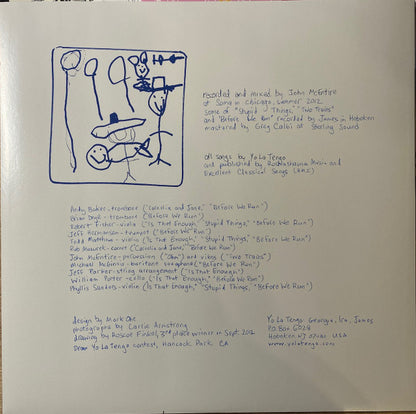 recorded and mixed by John McEntire
at Soma in Chicago, summer 2012
some of "Stupid Things," "Two Trains"
and "Before We Run" recorded by James in Hoboken
mastered by Greg Calbi at Sterling Sound
all songs by Yo La Tengo
and published by Roshashauna Music and
Excellent Classical Songs (BMI)
Andy Baker - trombone ("Cornelia and Jane," "Before We Run")
Brian - trombone ("Before We Run")
Robert Fisher - violin ("Is That Enough," "Stupid Things," "Before We Run")
Jeff - trumpet ("Before We Run")
Todd Matthews - violin ("Is That Enough," "Stupid Things," "Before We Run")
Rob Mazurek - cornet ("Cornelia and Jane," "Before We Run")
John McEntire - percussion ("Ohm") and vibes ("Two Trains")
Michael McGinnis - baritone saxophone ("Before We Run")
Jeff Parker - string arrangement ("Is That Enough")
William Porter - cello ("Is That Enough," "Stupid Things," "Before We Run")
Phyllis Sanders - violin ("Is That Enough," "Stupid Things," "Before We Run")
design by Mark Ohe
photographs by Carlie Armstrong
drawing by Roscoe Finkel, 3rd place winner in Sept 2012
Draw Yo La Tengo contest, Hancock Park, CA
Yo La Tengo: Georgia, Ira, James
P.O. Box 6028
Hoboken NJ 07030 USA
www.yolatengo.com